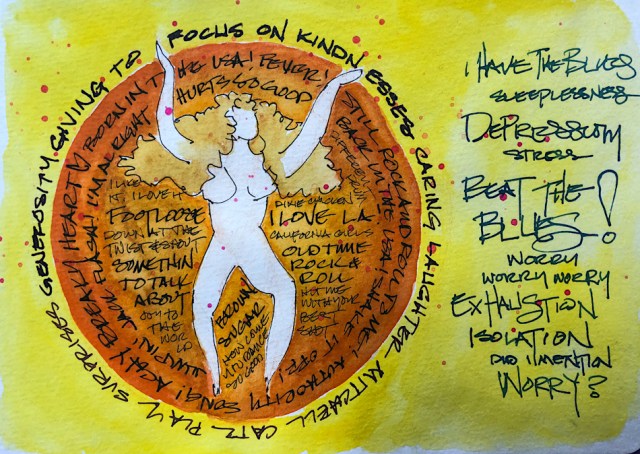 FOCUS ON KINDNESSES CARING LAUGHTER MITCHELL CATZ PLAY SURPRISES GENEROSITY GIVING TO
BORN IN THE USA! FEVER!
HURTS SO GOOD
STILL ROCK AND ROLL TO ME!
BACK IN THE USA! SHAKE IT OFF!
ACHY BREAKY HEART
JUMPIN' JACK FLASH! I'M ALRIGHT
I LIKE
IT I LOVE IT
FOOTLOOSE
DOWN AT THE
TWIST & SHOUT
SOMETHIN
TO TALK
ABOUT
JOY TO
THE WOR
LD
DIXIE CHICKEN
I LOVE LA
CALIFORNIA GIRLS
OLD TIME
ROCK &
ROLL
HIT ME
WITH YOUR
BEST
SHOT
BROWN
SUGAR
HOW COME
U
DANCE
SO GOOD
I HAVE THE BLUES
SLEEPLESSNESS
DEPRESSION
STRESS
BEAT THE
BLUES!
WORRY
WORRY WORRY
EXHAUSTION
ISOLATION
DID I MENTION
WORRY?